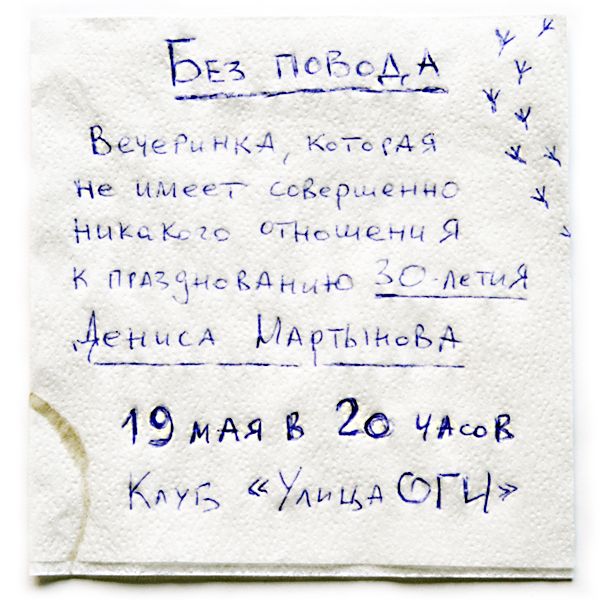 Без повода
Вечеринка, которая
не имеет совершенно
никакого отношения
к празднованию 30-летия
Дениса Мартынова
19 мая в 20 часов
Клуб «Улица ОГИ»